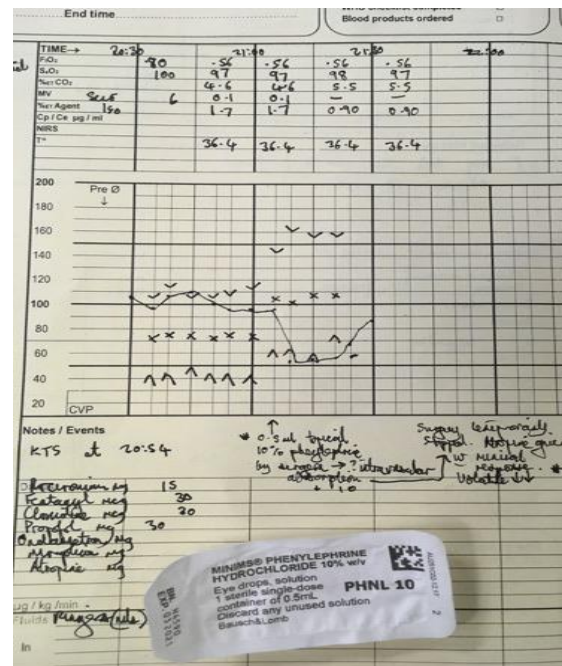 End time
Blood products ordered
TIME→ 20:30 21:00 21:30 22:00
FiO₂ .80 .56 .56 .56 .56
SaO₂ 100 97 97 98 97
%ET CO₂ 4.6 4.6 5.5 5.5
MV 6 0.1 0.1 — —
%ET Agent Iso 1.7 1.7 0.90 0.90
Cp / Ce µg / ml
NIRS
T° 36.4 36.4 36.4 36.4
200 Pre Ø
↓
180
160
140
120
100
80
60
40
20 CVP
Notes / Events
KTS at 20:54
0.5 ml topical
10% phenylephrine
by surgeon → ? intravascular
absorption
Surgery temporarily
stopped. Atropine given
w minimal
response.
Volatile ↓↓
Rocuronium mg 15
Fentanyl mcg 30
Clonidine mcg 20
Propofol mg 30
Ondansetron mg
Atropine mg
µg / kg /min
Fluids
In
MINIMS® PHENYLEPHRINE
HYDROCHLORIDE 10% w/v
Eye drops, solution
1 sterile single-dose
container of 0.5mL
Discard any unused solution
Bausch&Lomb
PHNL 10
EXP 03 2021
2